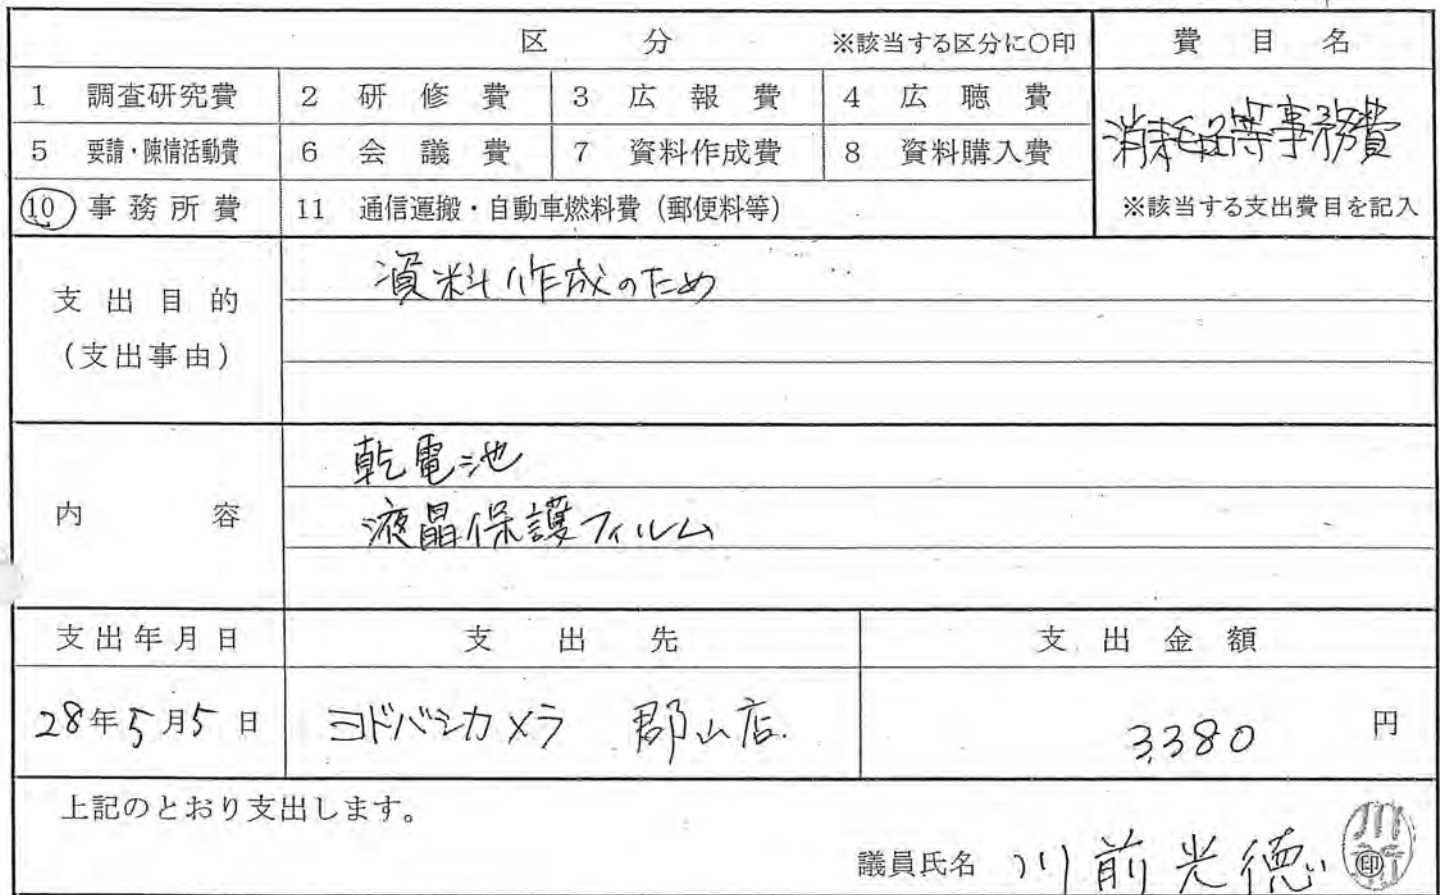 区 分 ※該当する区分に○印 費 目 名
1 調査研究費 2 研 修 費 3 広 報 費 4 広 聴 費
消耗品等事務費
5 要請・陳情活動費 6 会 議 費 7 資料作成費 8 資料購入費
⑩ 事 務 所 費 11 通信運搬・自動車燃料費（郵便料等） ※該当する支出費目を記入
支 出 目 的
（支出事由）
資料作成のため
内 容
乾電池
液晶保護フィルム
支 出 年 月 日 支 出 先 支 出 金 額
28年5月5日 ヨドバシカメラ 郡山店 3,380 円
上記のとおり支出します。
議員氏名 川前光徳 印